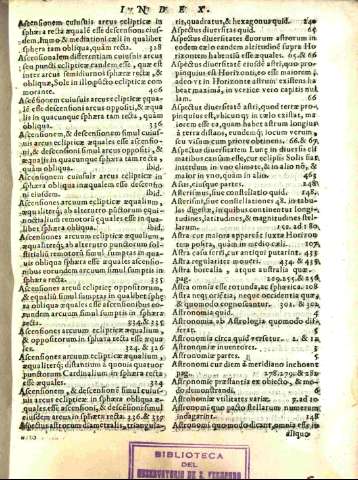 I N D E X.
Ascensionem cuiusuis arcus eclipticæ in
sphæra recta æqualē esse descensioni eiusdem.
sphera tam obliqua, quàm recta. 328
Ascensionalem differentiam cuiusuis arcus
seu puncti eclipticæ eandem esse, quæ est
inter arcus semidiurnos sphæræ rectæ, &
obliquæ, Sole in illo puncto eclipticæ commorante. 406
Ascensionem cuiusuis arcus eclipticæ æqualē
esse descensioni arcus oppositi, & æquali
in quacunque sphæra tam recta, quàm
obliqua. 336
Ascensionem, & descensionem simul cuiusuis
arcus eclipticæ æquales esse ascensioni,
& descensioni simul arcus oppositi, &
æqualis in quacunque sphæra tam recta,
quàm obliqua. ibid.
Ascensionem cuiusuis arcus eclipticæ in
sphæra obliqua inæqualem esse descensioni
eiusdem. ibid.
Ascensiones arcuum eclipticæ æqualium,
æqualiterq́; ab alterutro punctorum æquinoctialium
remotorū æquales esse in qualibet
sphæra obliqua. ibid.
Ascensiones arcuum eclipticæ æqualium,
æqualiterq́; ab alterutro punctorum solstitialiū
remotorū simul sumptas in quauis
sphæra obliqua æquales esse ascensionibus
eorundem arcuum simul sumptis in
sphæra recta. 335
Ascensiones arcus eclipticę oppositorum,
& equaliū simul sumptas in qualibet sphęra
obliqua æquales esse ascensionibus eorundem
arcuum simul sumptis in sphæra
recta. 334. & 335
Ascensiones arcuum eclipticæ æqualium,
& oppositorum in sphæra recta esse æquales.
324. & 326
Ascensiones arcuum eclipticæ æqualium,
æqualiterq́; distantium à quouis quatuor
punctorum Cardinalium in sphæra recta
esse æquales. 324
Ascensionem, & descensionē simul cuiusuis
arcus eclipticæ in sphæra obliqua æquales
esse ascensioni, & descensioni simul
eiusdem arcus in sphæra recta. 336. & 339
Aspectus astrorum diametralis, triangularis,
quadratus, & hexagonus quid. 240
Aspectus diuersitas quid. 65
Aspectus diuersitates duorum astrorum in
eodem cælo eandem altitudinē supra Horizontem
habentium esse æquales. 66
Aspectus diuersitatē eiusdē astri, quo propinquius
est Horizonti, eo esse maiorem;
adeo vt in Horizonte astrum existens habeat
maximā, in vertice vero capitis nullam.
66
Aspectus diuersitatē astri, quod terræ propinquius
est, hicunq; in cælo extillat, maiorem
esse ea, quam habet astrum longius
à terra distans, eundemq́; locum verum,
seu visum cum priore obtinens. 66. & 67
Aspectus diuersitatem Lunę in diuersis climatibus
causam esse, cur eclipsis Solis fiat,
interdum in vno climate, & in alio nō, &
maior in vno, quàm in alio. 465
Astri, eiusque partes. 248
Asterismus, siue constellatio quid. 148.
Asterismi, siue constellationes 48. in tabulas
digestæ, in quibus continentur longitudines,
latitudines, & magnitudines stellarum.
150. ad 180.
Astra cur maiora appareāt iuxta Horizontem
posita, quàm in medio cæli. 107.
Astra casu ferri, vt antiqui putarint. 435
Astra regulariter moueri. 434. & 435.
Astra borealia, atque australia quæ.
149. 155. & 156
Astra omnia esse rotunda, ac sphęrica. 108
Astra neq; orientia, neque occidentia quæ,
& quomodo cognoscantur. 301. & 302
Astronomia quid. 4
Astronomia ab Astrologia quomodo differat.
4
Astronomia circa quid versetur. 2. & 12
Astronomiæ inuentores. 3
Astronomiæ partes. 5
Astronomi cur diem à meridiano inchoent.
278. 279. & 281
Astronomiæ præstantia ex obiecto, & modo
demonstrandi. 6
Astronomiæ vtilitates variæ. 7. ad 10
Astronomi quo pacto stellarum numerum
indagarint. 148
Astronomi quomodo dicant, omnia esse in
aliquo
BIBLIOTECA
DEL
OBSERVATORIO DE S. FERNANDO